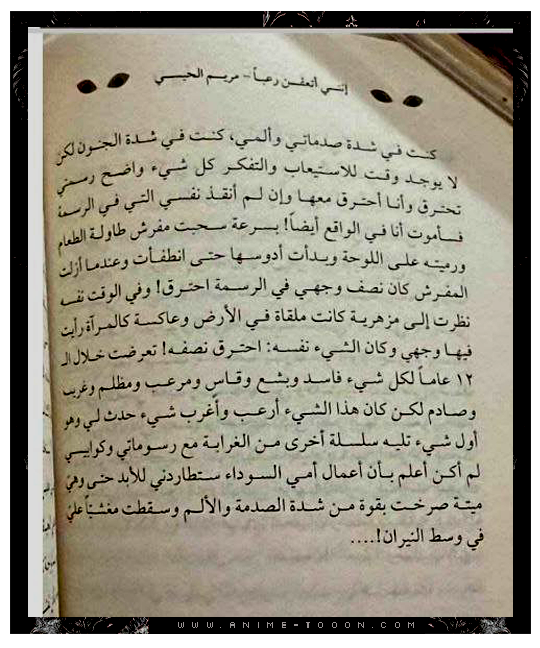 إنني أتعفن رعباً - مريم الحيسي
كنت في شدة صدماتي وألمي، كنت في شدة الجنون لكن
لا يوجد وقت للاستيعاب والتفكر كل شيء واضح رسمتي
تحترق وأنا أحترق معها وإن لم أنقذ نفسي التي في الرسمة
فسأموت أنا في الواقع أيضاً! بسرعة سحبت مفرش طاولة الطعام
ورميته على اللوحة وبدأت أدوسها حتى انطفأت وعندما أزلت
المفرش كان نصف وجهي في الرسمة احترق! وفي الوقت نفسه
نظرت إلى مزهرية كانت ملقاة في الأرض وعاكسة كالمرآة رأيت
فيها وجهي وكان الشيء نفسه: احترق نصفه! تعرضت خلال الـ
١٢ عاماً لكل شيء فاسد وبشع وقاس ومرعب ومظلم وغريب
وصادم لكن كان هذا الشيء أرعب وأغرب شيء حدث لي وهو
أول شيء تليه سلسلة أخرى من الغرابة مع رسوماتي وكوابيسي
لم أكن أعلم بأن أعمال أمي السوداء ستطاردني للأبد حتى وهي
ميتة صرخت بقوة من شدة الصدمة والألم وسقطت مغشيّاً عليّ
في وسط النيران!....
WWW.ANIME-TOOON.COM